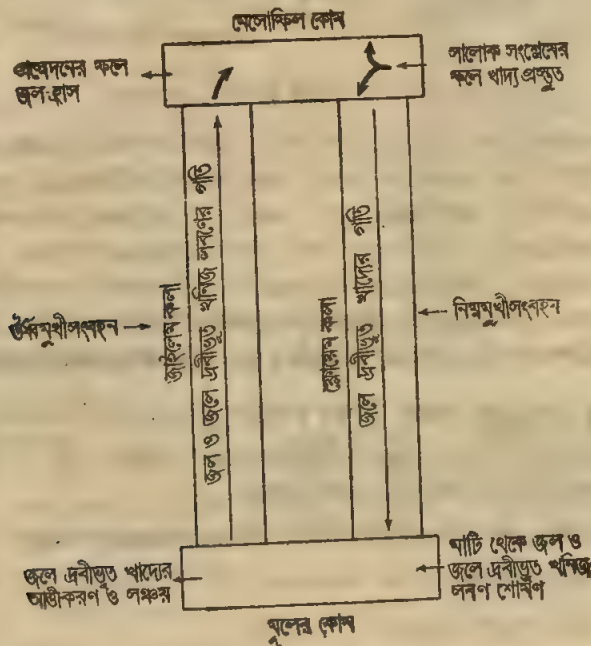 মেসোফিল কোষ
প্রস্বেদনের ফলে
জল হ্রাস
সালোক সংশ্লেষের
ফলে খাদ্য প্রস্তুত
ঊর্ধ্বমুখীসংবহন
জাইলেম কলা
জল ও জলে দ্রবীভূত খনিজ লবণের গতি
ফ্লোয়েম কলা
জলে দ্রবীভূত খাদ্যের গতি
নিম্নমুখীসংবহন
জলে দ্রবীভূত খাদ্যের
আত্তীকরণ ও সঞ্চয়
মাটি থেকে জল ও
জলে দ্রবীভূত খনিজ
লবণ শোষণ
মূলের কোষ